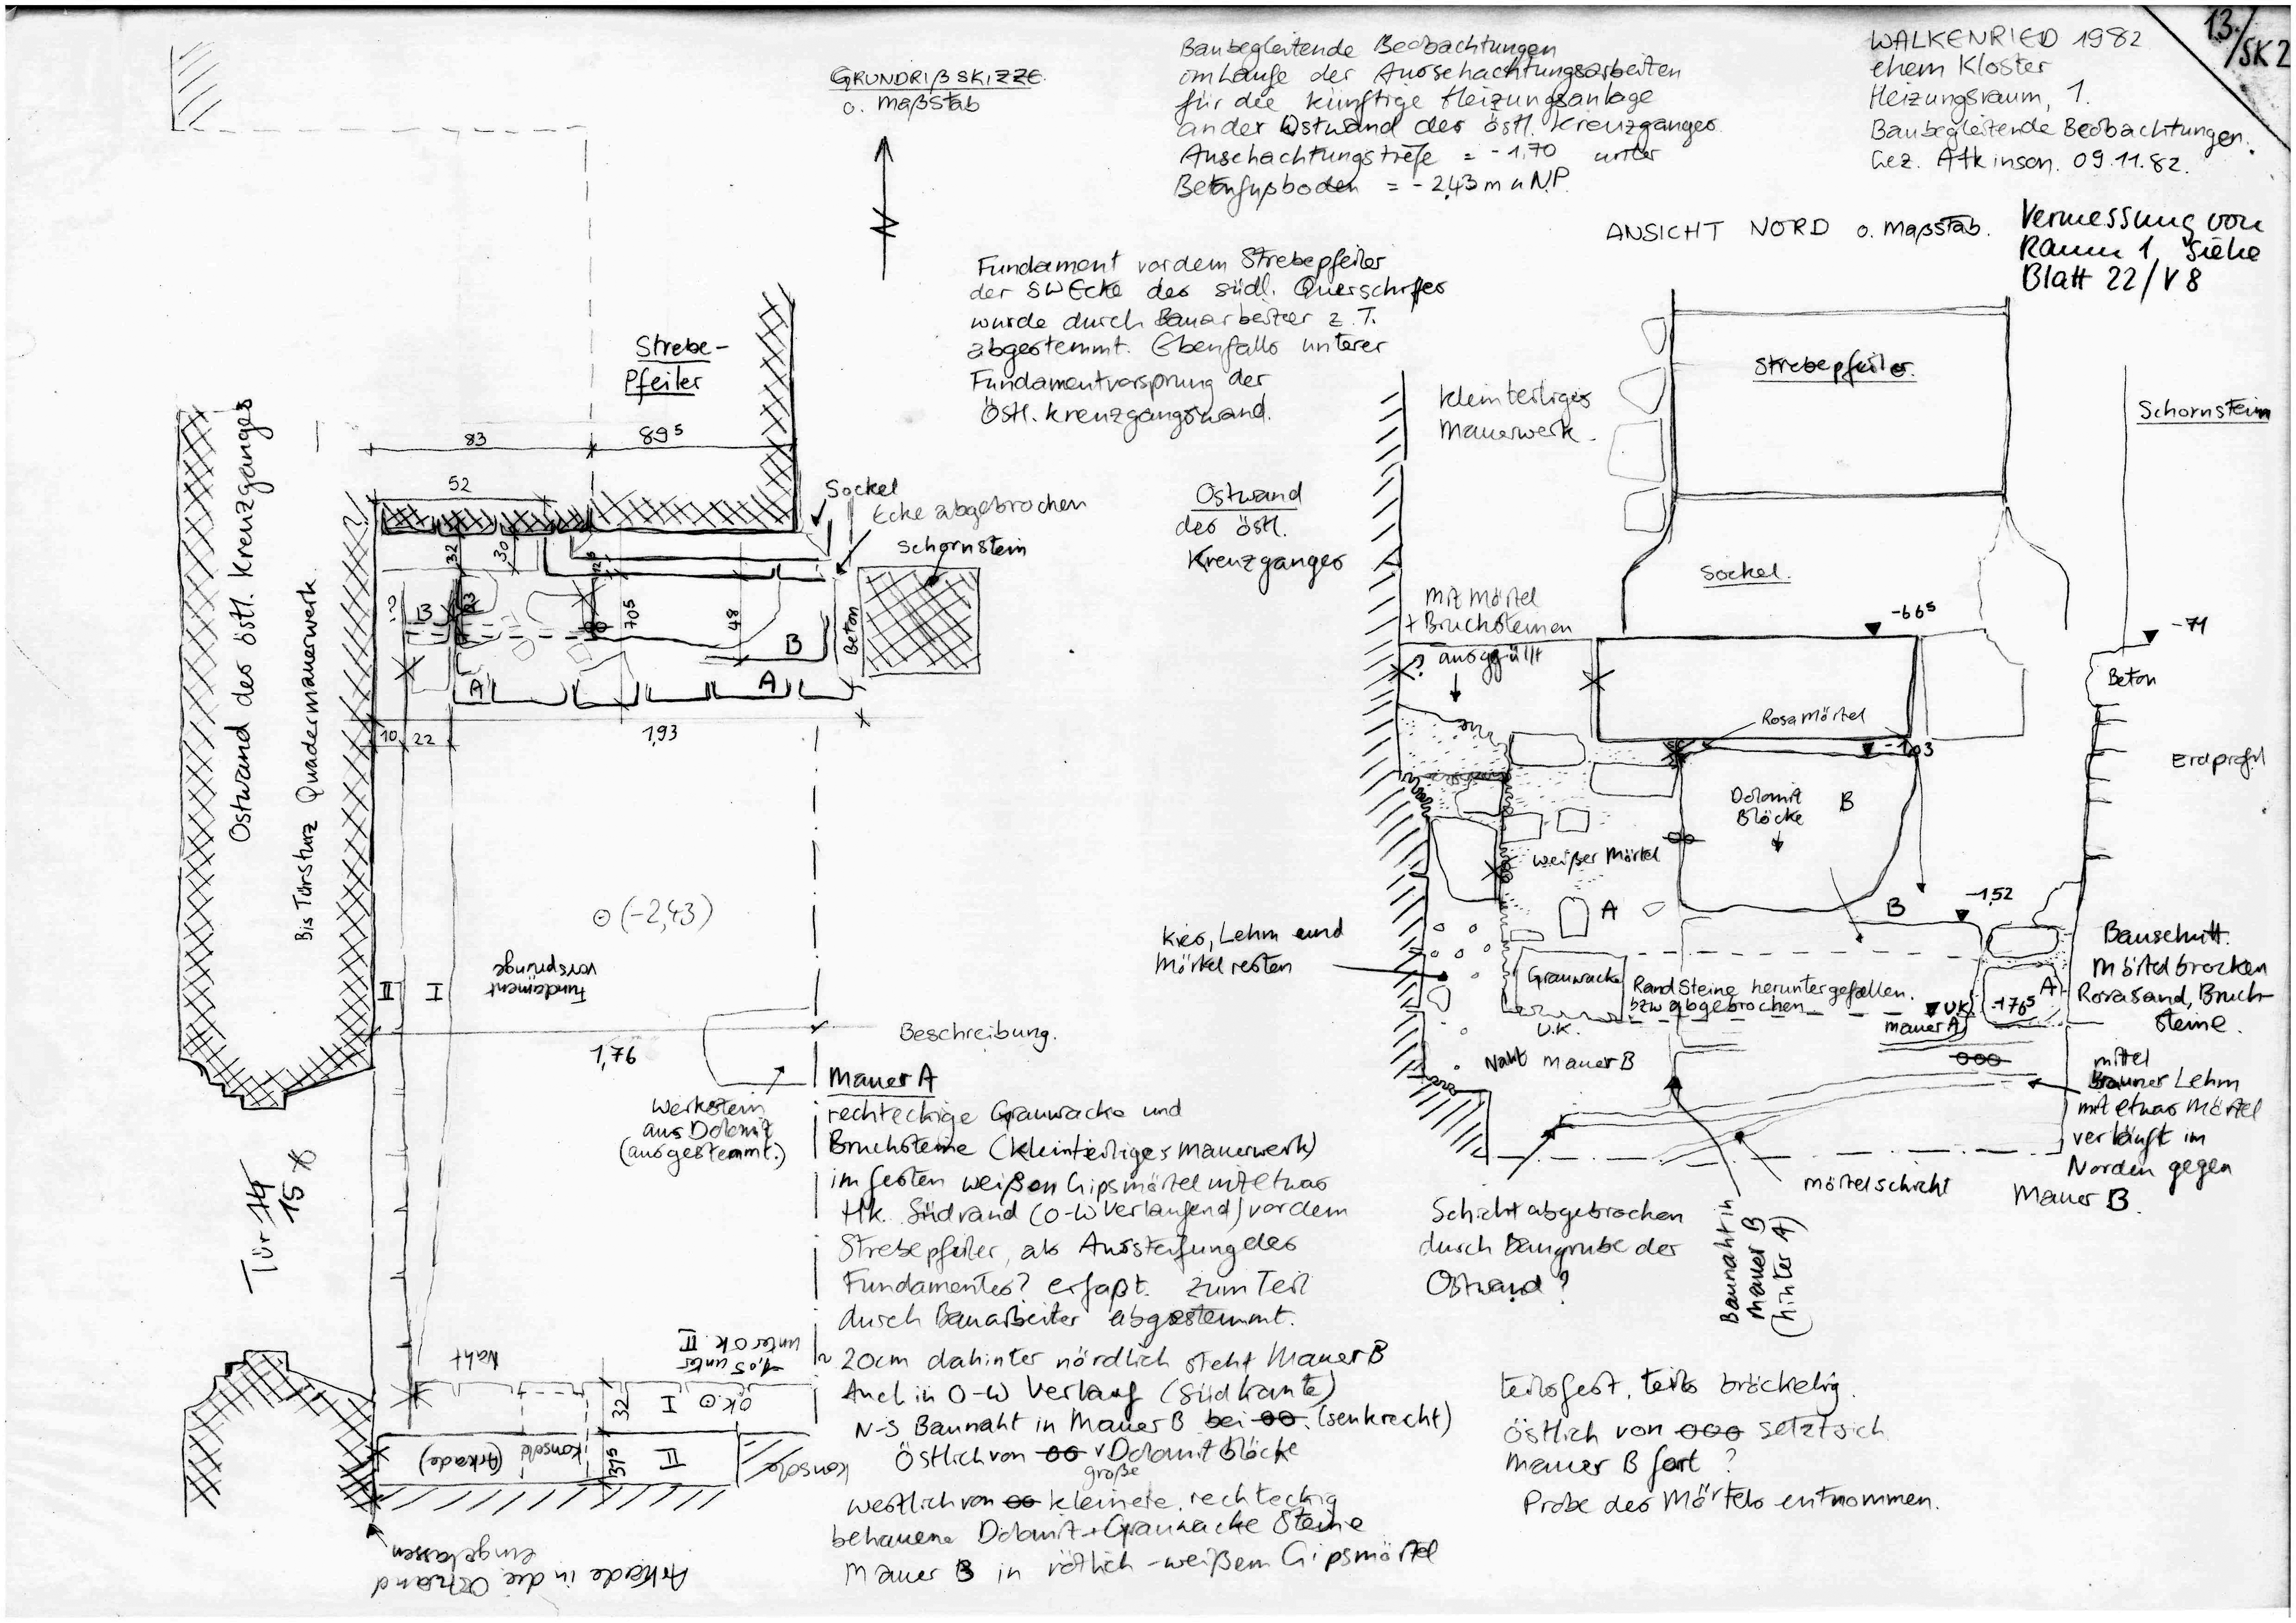 13./SK2
WALKENRIED 1982
ehem Kloster
Heizungsraum, 1.
Baubegleitende Beobachtungen.
Gez. Atkinson. 09.11.82.
Vermessung von
Raum 1, siehe
Blatt 22/V8
Baubegleitende Beobachtungen
im Laufe der Ausschachtungsarbeiten
für die künftige Heizungsanlage
an der Ostwand des östl. Kreuzganges
Auschachtungstiefe = -1,70 unter
Betonfußboden = -2,43 m u N.P.
GRUNDRIßSKIZZE
o. Maßstab
N
Fundament vor dem Strebepfeiler
der SW Ecke des südl. Querschiffes
wurde durch Bauarbeiter z.T.
abgestemmt. Ebenfalls unterer
Fundamentvorsprung der
östl. Kreuzgangswand.
Strebe-
Pfeiler
83
89⁵
52
Sockel
Ecke abgebrochen
Schornstein
Ostwand des östl. Kreuzganges
Bis Türsturz Quadermauerwerk
32
30
?
B
70⁵
48
B
Beton
A
A
10
22
1,93
(-2,43)
Fundament
vorsprünge
II
I
1,76
Werkstein
aus Dolomit
(ausgestemmt.)
Tür 14
15
Naht
-1,05 unter
unter OK II
OK
I
32
II
31⁵
Konsole
(Arkade)
Konsole
Arkade in die Ostwand
eingelassen
Beschreibung.
Mauer A
rechteckige Grauwacke und
Bruchsteine (kleinteiliges Mauerwerk)
im festen weißen Gipsmörtel mit etwas
Hk. Südrand (O-W verlaufend) vor dem
Strebepfeiler, als Aussteifung des
Fundamentes? erfaßt. Zum Teil
durch Bauarbeiter abgestemmt.
~ 20cm dahinter nördlich steht Mauer B
Auch in O-W Verlauf (Südkante)
N-S Baunaht in Mauer B bei oo. (senkrecht)
Östlich von oo v Dolomit blöcke
große
westlich von oo kleinere, rechteckig
behauene Dolomit + Grauwacke Steine
Mauer B in rötlich-weißem Gipsmörtel
teils fest, teils bröckelig.
östlich von ooo setzt sich
Mauer B fort ?
Probe des Mörtels entnommen.
ANSICHT NORD o. Maßstab.
Strebepfeiler
Schornstein
kleinteiliges
Mauerwerk.
Ostwand
des östl.
Kreuzganges
Sockel.
mit Mörtel
+ Bruchsteinen
ausgefüllt
?
-66⁵
-71
Beton
Rosa Mörtel
-1,03
Erdprofil
Dolomit
Blöcke
B
oo
weißer Mörtel
A
B
-1,52
Kies, Lehm und
Mörtelresten
Grauwacke
U.K.
Randsteine heruntergefallen.
bzw abgebrochen
U.K.
Mauer A
-1,76⁵
A
Bauschutt.
Mörtelbrocken
Rosasand, Bruch-
steine.
Naht Mauer B
ooo
mittel
Brauner Lehm
mit etwas Mörtel
verläuft im
Norden gegen
Mauer B.
Mörtelschicht
Schicht abgebrochen
durch Baugrube der
Ostwand ?
Baunaht in
Mauer B
(hinter A)